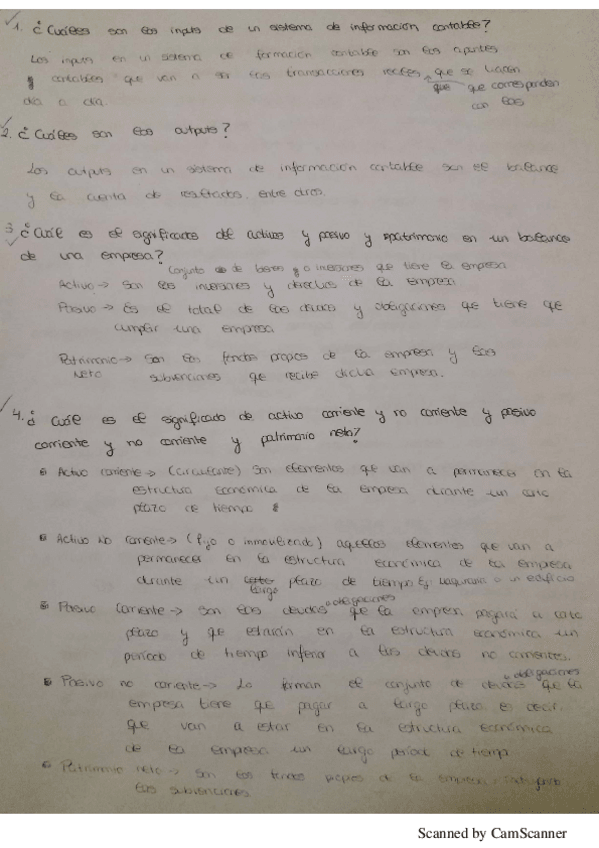 1. ¿Cuáles son los inputs de un sistema de información contable?
Los inputs en un sistema de formación contable son los apuntes
y contables que van a ser las transacciones reales que se hacen
que que corresponden
día a día. con los
2. ¿Cuáles son los outputs?
Los outputs en un sistema de información contable son el balance
y la cuenta de resultados, entre otros.
3. ¿Cuál es el significado del activos y pasivo y patrimonio en un balance
de una empresa?
Conjunto de bienes y o inversiones que tiene la empresa
Activo → Son las inversiones y derechos de la empresa
Pasivo → Es el total de las deudas y obligaciones que tiene que
cumplir una empresa
Patrimonio → Son los fondos propios de la empresa y las
Neto subvenciones que recibe dicha empresa.
4. ¿Cuál es el significado de activo corriente y no corriente y pasivo
corriente y no corriente y patrimonio neto?
Activo corriente → (circulante) Son elementos que van a permanecer en la
estructura económica de la empresa durante un corto
plazo de tiempo
Activo No corriente → (fijo o inmovilizado) aquellos elementos que van a
permanecer en la estructura económica de la empresa
durante un corto plazo de tiempo Ej: maquinaria o un edificio
largo
Pasivo corriente → Son las deudas u obligaciones que la empresa pagará a corto
plazo y que estarán en la estructura económica un
período de tiempo inferior a las deudas no corrientes.
Pasivo no corriente → Lo forman el conjunto de deudas u obligaciones que la
empresa tiene que pagar a largo plazo es decir.
que van a estar en la estructura económica
de la empresa un largo período de tiempo
Patrimonio neto → Son los fondos propios de la empresa, incluyendo
las subvenciones
Scanned by CamScanner